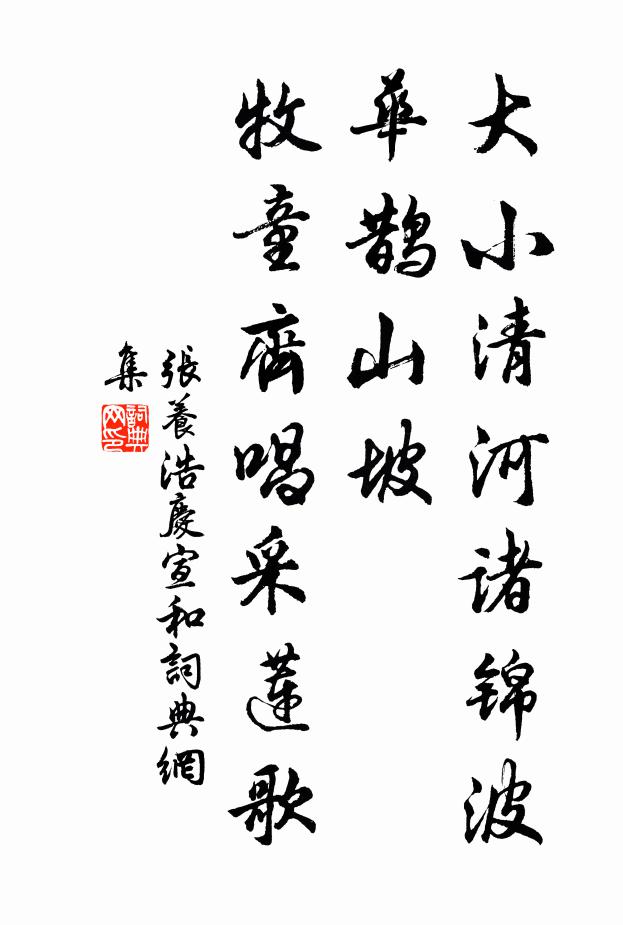 大小清河諸锦波
華鹊山坡
牧童齊唱采蓮歌
張養浩慶宣和詞典網
集
詞典
网印